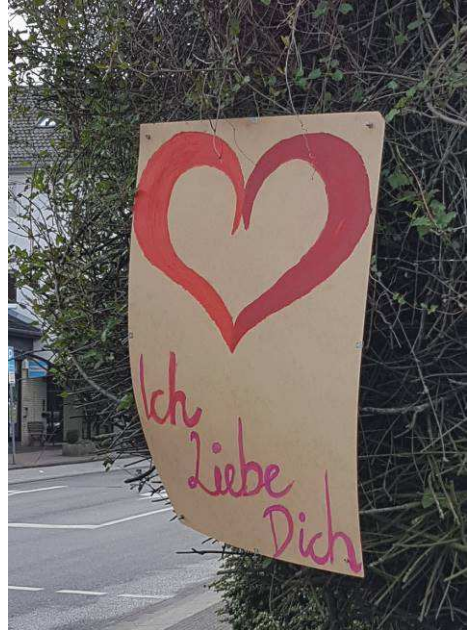 Ich
Liebe
Dich